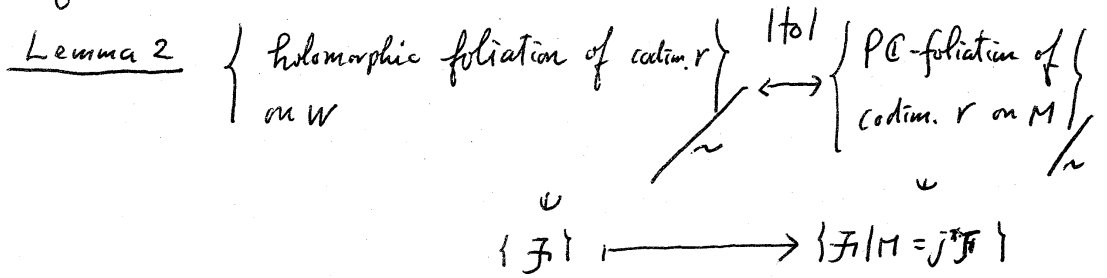 Lemma 2 { holomorphic foliation of codim. r } / ~ 1 to 1 ↔ { PC-foliation of } / ~
on W codim. r on M
ψ ψ
{ F } ⟼ { F|M = j*F }